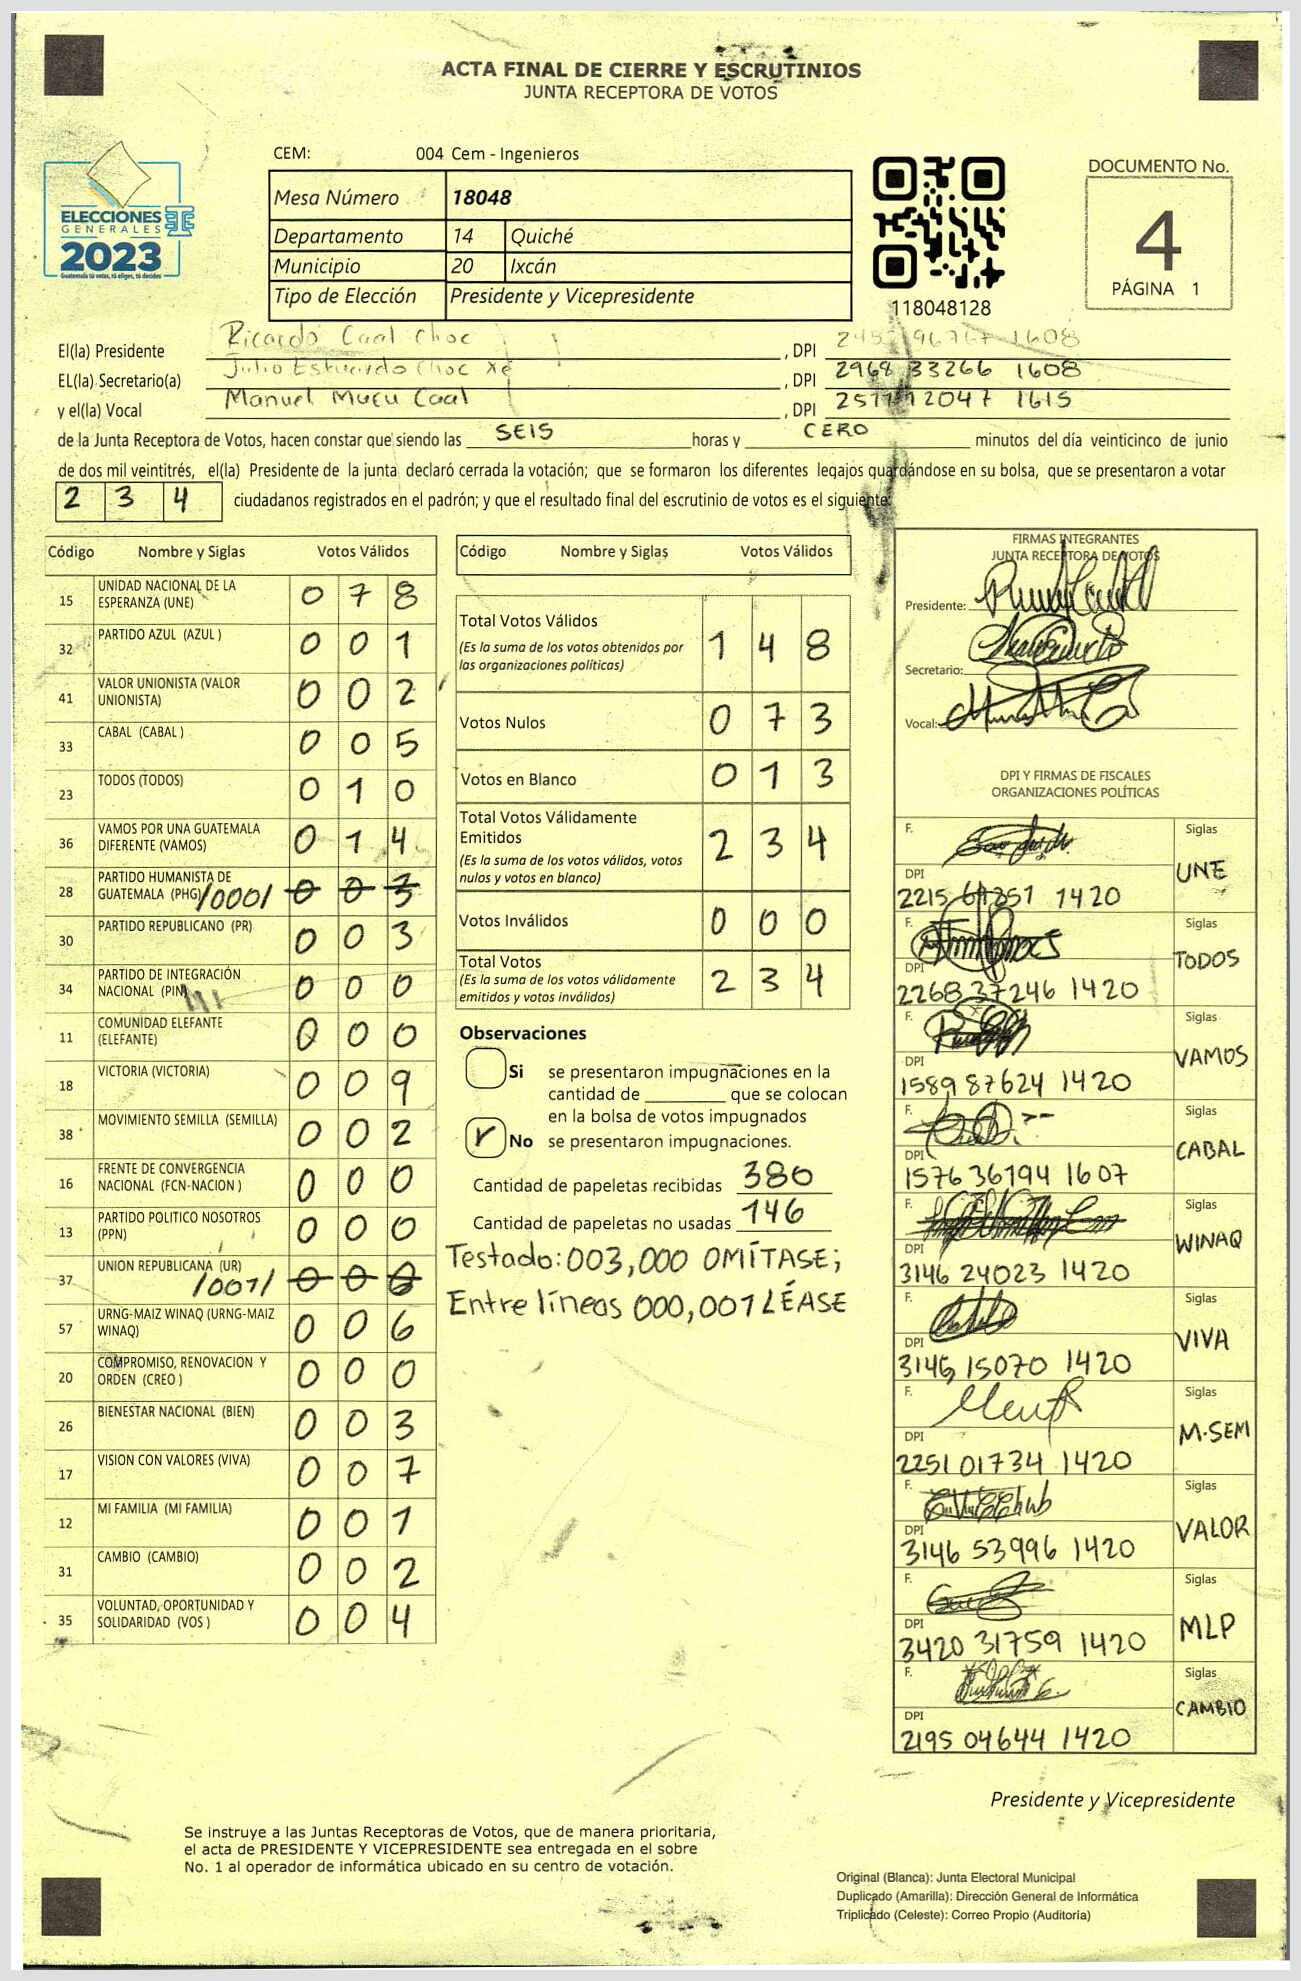 ACTA FINAL DE CIERRE Y ESCRUTINIOS
JUNTA RECEPTORA DE VOTOS
CEM: 004 Cem - Ingenieros
ELECCIONES
GENERALES
2023
Guatemala tú votas, tú eliges, tú decides
Mesa Número 18048
Departamento 14 Quiché
Municipio 20 Ixcán
Tipo de Elección Presidente y Vicepresidente
118048128
DOCUMENTO No.
4
PÁGINA 1
El(la) Presidente Ricardo Caal Choc , DPI 1608
EL(la) Secretario(a) Julio Estuardo Choc Xé , DPI 2968 33266 1608
y el(la) Vocal Manuel Mucu Caal , DPI 12047 1615
de la Junta Receptora de Votos, hacen constar que siendo las SEIS horas y CERO minutos del día veinticinco de junio
de dos mil veintitrés, el(la) Presidente de la junta declaró cerrada la votación; que se formaron los diferentes legajos guardándose en su bolsa, que se presentaron a votar
2 3 4 ciudadanos registrados en el padrón; y que el resultado final del escrutinio de votos es el siguiente:
Código Nombre y Siglas Votos Válidos
15 UNIDAD NACIONAL DE LA ESPERANZA (UNE) 0 7 8
32 PARTIDO AZUL (AZUL ) 0 0 1
41 VALOR UNIONISTA (VALOR UNIONISTA) 0 0 2
33 CABAL (CABAL ) 0 0 5
23 TODOS (TODOS) 0 1 0
36 VAMOS POR UNA GUATEMALA DIFERENTE (VAMOS) 0 1 4
28 PARTIDO HUMANISTA DE GUATEMALA (PHG) /000/ 0 0 3
30 PARTIDO REPUBLICANO (PR) 0 0 3
34 PARTIDO DE INTEGRACIÓN NACIONAL (PIN) 0 0 0
11 COMUNIDAD ELEFANTE (ELEFANTE) 0 0 0
18 VICTORIA (VICTORIA) 0 0 9
38 MOVIMIENTO SEMILLA (SEMILLA) 0 0 2
16 FRENTE DE CONVERGENCIA NACIONAL (FCN-NACION ) 0 0 0
13 PARTIDO POLITICO NOSOTROS (PPN) 0 0 0
37 UNION REPUBLICANA (UR) /001/ 0 0 0
57 URNG-MAIZ WINAQ (URNG-MAIZ WINAQ) 0 0 6
20 COMPROMISO, RENOVACION Y ORDEN (CREO ) 0 0 0
26 BIENESTAR NACIONAL (BIEN) 0 0 3
17 VISION CON VALORES (VIVA) 0 0 7
12 MI FAMILIA (MI FAMILIA) 0 0 1
31 CAMBIO (CAMBIO) 0 0 2
35 VOLUNTAD, OPORTUNIDAD Y SOLIDARIDAD (VOS ) 0 0 4
Código Nombre y Siglas Votos Válidos
Total Votos Válidos 1 4 8
(Es la suma de los votos obtenidos por
las organizaciones políticas)
Votos Nulos 0 7 3
Votos en Blanco 0 1 3
Total Votos Válidamente
Emitidos 2 3 4
(Es la suma de los votos válidos, votos
nulos y votos en blanco)
Votos Inválidos 0 0 0
Total Votos 2 3 4
(Es la suma de los votos válidamente
emitidos y votos inválidos)
Observaciones
Si se presentaron impugnaciones en la
cantidad de ________ que se colocan
en la bolsa de votos impugnados
No se presentaron impugnaciones.
Cantidad de papeletas recibidas 380
Cantidad de papeletas no usadas 146
Testado: 003,000 OMÍTASE;
Entre líneas 000,001 LÉASE
FIRMAS INTEGRANTES
JUNTA RECEPTORA DE VOTOS
Presidente:
Secretario:
Vocal:
DPI Y FIRMAS DE FISCALES
ORGANIZACIONES POLÍTICAS
F. Siglas
DPI UNE
2215 1420
F. Siglas
DPI TODOS
2268 37246 1420
F. Siglas
DPI VAMOS
1589 87624 1420
F. Siglas
DPI CABAL
1576 36194 1607
F. Siglas
DPI WINAQ
3146 24023 1420
F. Siglas
DPI VIVA
3146 15070 1420
F. Siglas
DPI M.SEM
2251 01734 1420
F. Siglas
DPI VALOR
3146 53996 1420
F. Siglas
DPI MLP
3420 31759 1420
F. Siglas
DPI CAMBIO
2195 04644 1420
Presidente y Vicepresidente
Se instruye a las Juntas Receptoras de Votos, que de manera prioritaria,
el acta de PRESIDENTE Y VICEPRESIDENTE sea entregada en el sobre
No. 1 al operador de informática ubicado en su centro de votación.
Original (Blanca): Junta Electoral Municipal
Duplicado (Amarilla): Dirección General de Informática
Triplicado (Celeste): Correo Propio (Auditoría)